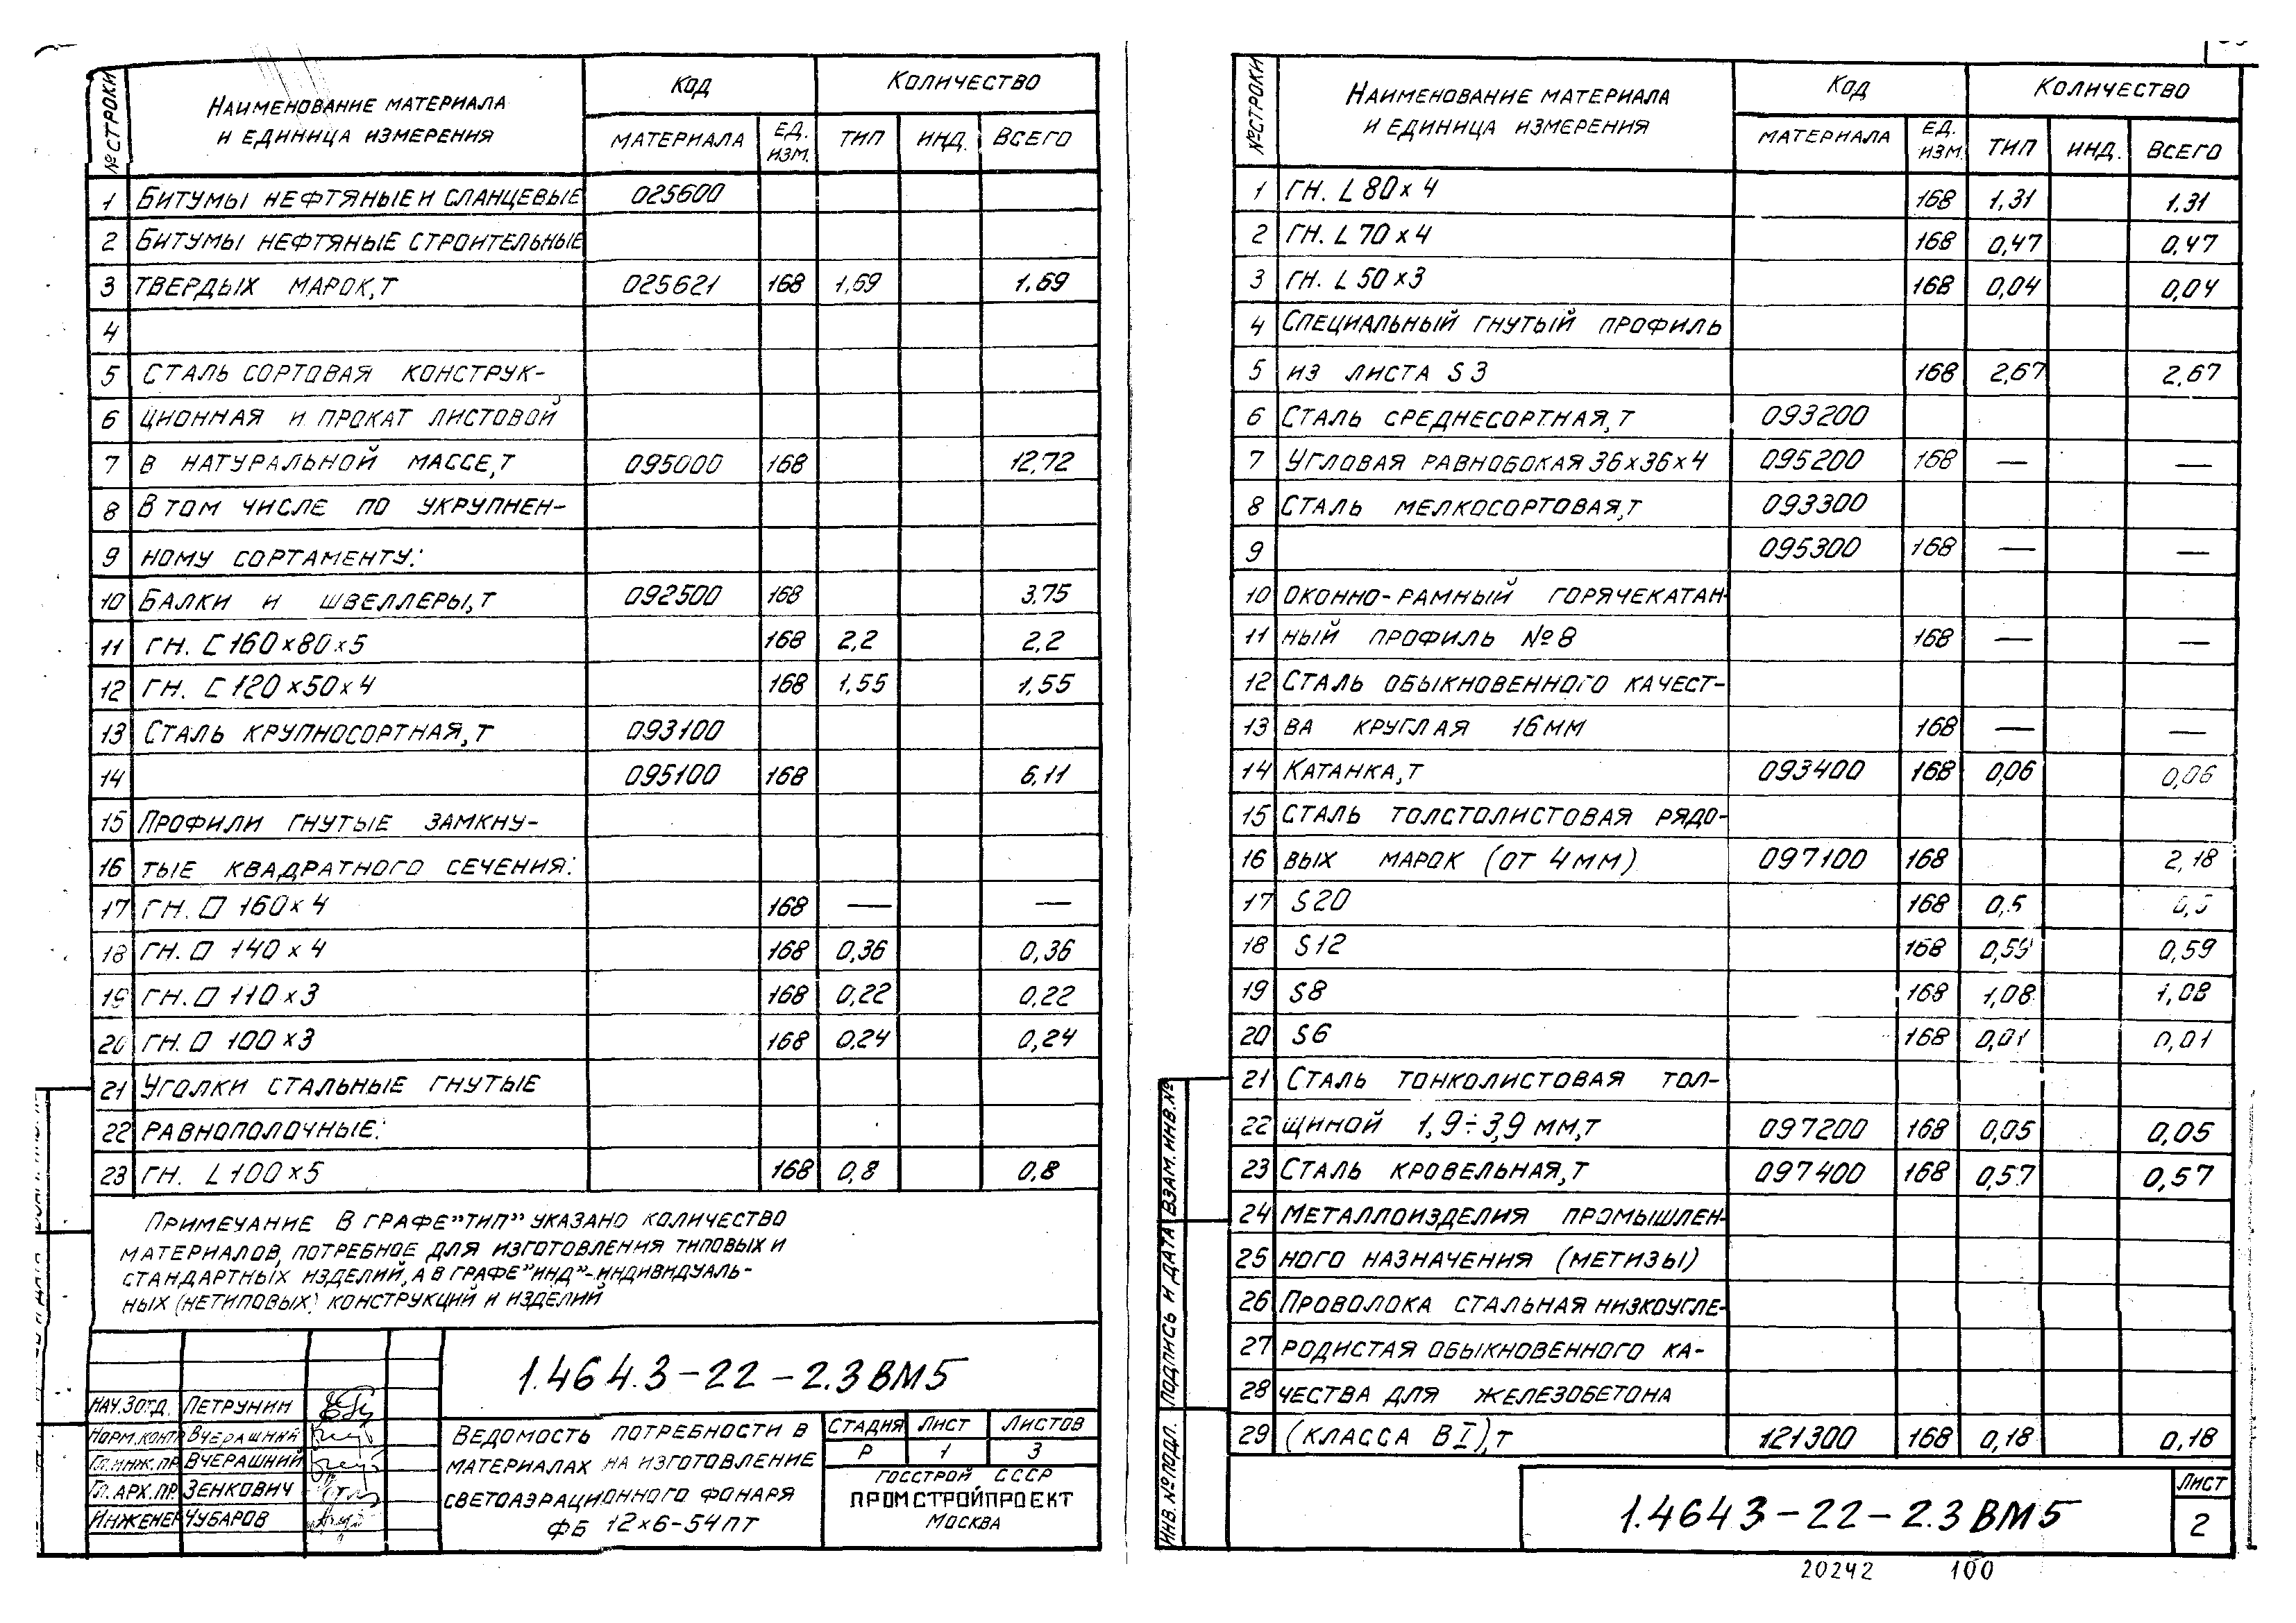 № СТРОКИ
НАИМЕНОВАНИЕ МАТЕРИАЛА
И ЕДИНИЦА ИЗМЕРЕНИЯ
КОД
КОЛИЧЕСТВО
МАТЕРИАЛА ЕД. ИЗМ. ТИП ИНД. ВСЕГО
1 БИТУМЫ НЕФТЯНЫЕ И СЛАНЦЕВЫЕ 025600
2 БИТУМЫ НЕФТЯНЫЕ СТРОИТЕЛЬНЫЕ
3 ТВЕРДЫХ МАРОК, Т 025621 168 1,69 1,69
4
5 СТАЛЬ СОРТОВАЯ КОНСТРУК-
6 ЦИОННАЯ И ПРОКАТ ЛИСТОВОЙ
7 В НАТУРАЛЬНОЙ МАССЕ, Т 095000 168 12,72
8 В ТОМ ЧИСЛЕ ПО УКРУПНЕН-
9 НОМУ СОРТАМЕНТУ:
10 БАЛКИ И ШВЕЛЛЕРЫ, Т 092500 168 3,75
11 ГН. С 160×80×5 168 2,2 2,2
12 ГН. С 120×50×4 168 1,55 1,55
13 СТАЛЬ КРУПНОСОРТНАЯ, Т 093100
14 095100 168 6,11
15 ПРОФИЛИ ГНУТЫЕ ЗАМКНУ-
16 ТЫЕ КВАДРАТНОГО СЕЧЕНИЯ:
17 ГН. □ 160×4 168 — —
18 ГН. □ 140×4 168 0,36 0,36
19 ГН. □ 110×3 168 0,22 0,22
20 ГН. □ 100×3 168 0,24 0,24
21 УГОЛКИ СТАЛЬНЫЕ ГНУТЫЕ
22 РАВНОПОЛОЧНЫЕ:
23 ГН. L 100×5 168 0,8 0,8
ПРИМЕЧАНИЕ В ГРАФЕ "ТИП" УКАЗАНО КОЛИЧЕСТВО
МАТЕРИАЛОВ, ПОТРЕБНОЕ ДЛЯ ИЗГОТОВЛЕНИЯ ТИПОВЫХ И
СТАНДАРТНЫХ ИЗДЕЛИЙ, А В ГРАФЕ "ИНД"-ИНДИВИДУАЛЬ-
НЫХ (НЕТИПОВЫХ) КОНСТРУКЦИЙ И ИЗДЕЛИЙ
1.464.3-22-2.3ВМ5
НАЧ.ЗОТД. ПЕТРУНИН
НОРМ.КОНТР ВЧЕРАШНИЙ
ГЛ.ИНЖ.ПР. ВЧЕРАШНИЙ
ГЛ.АРХ.ПР. ЗЕНКОВИЧ
ИНЖЕНЕР ЧУБАРОВ
ВЕДОМОСТЬ ПОТРЕБНОСТИ В
МАТЕРИАЛАХ НА ИЗГОТОВЛЕНИЕ
СВЕТОАЭРАЦИОННОГО ФОНАРЯ
ФБ 12×6-54ПТ
СТАДИЯ ЛИСТ ЛИСТОВ
Р 1 3
ГОССТРОЙ СССР
ПРОМСТРОЙПРОЕКТ
МОСКВА
№ СТРОКИ
НАИМЕНОВАНИЕ МАТЕРИАЛА
И ЕДИНИЦА ИЗМЕРЕНИЯ
КОД
КОЛИЧЕСТВО
МАТЕРИАЛА ЕД. ИЗМ. ТИП ИНД. ВСЕГО
1 ГН. L 80×4 168 1,31 1,31
2 ГН. L 70×4 168 0,47 0,47
3 ГН. L 50×3 168 0,04 0,04
4 СПЕЦИАЛЬНЫЙ ГНУТЫЙ ПРОФИЛЬ
5 ИЗ ЛИСТА S3 168 2,67 2,67
6 СТАЛЬ СРЕДНЕСОРТНАЯ, Т 093200
7 УГЛОВАЯ РАВНОБОКАЯ 36×36×4 095200 168 — —
8 СТАЛЬ МЕЛКОСОРТОВАЯ, Т 093300
9 095300 168 — —
10 ОКОННО-РАМНЫЙ ГОРЯЧЕКАТАН-
11 НЫЙ ПРОФИЛЬ №8 168 — —
12 СТАЛЬ ОБЫКНОВЕННОГО КАЧЕСТ-
13 ВА КРУГЛАЯ 16ММ 168 — —
14 КАТАНКА, Т 093400 168 0,06 0,06
15 СТАЛЬ ТОЛСТОЛИСТОВАЯ РЯДО-
16 ВЫХ МАРОК (ОТ 4ММ) 097100 168 2,18
17 S20 168 0,5 0,5
18 S12 168 0,59 0,59
19 S8 168 1,08 1,08
20 S6 168 0,01 0,01
21 СТАЛЬ ТОНКОЛИСТОВАЯ ТОЛ-
22 ЩИНОЙ 1,9÷3,9 ММ, Т 097200 168 0,05 0,05
23 СТАЛЬ КРОВЕЛЬНАЯ, Т 097400 168 0,57 0,57
24 МЕТАЛЛОИЗДЕЛИЯ ПРОМЫШЛЕН-
25 НОГО НАЗНАЧЕНИЯ (МЕТИЗЫ)
26 ПРОВОЛОКА СТАЛЬНАЯ НИЗКОУГЛЕ-
27 РОДИСТАЯ ОБЫКНОВЕННОГО КА-
28 ЧЕСТВА ДЛЯ ЖЕЛЕЗОБЕТОНА
29 (КЛАССА ВI), Т 121300 168 0,18 0,18
ИНВ.№ПОДЛ. ПОДПИСЬ И ДАТА ВЗАМ.ИНВ.№
1.464 3-22-2.3ВМ5
ЛИСТ
2
20242 100